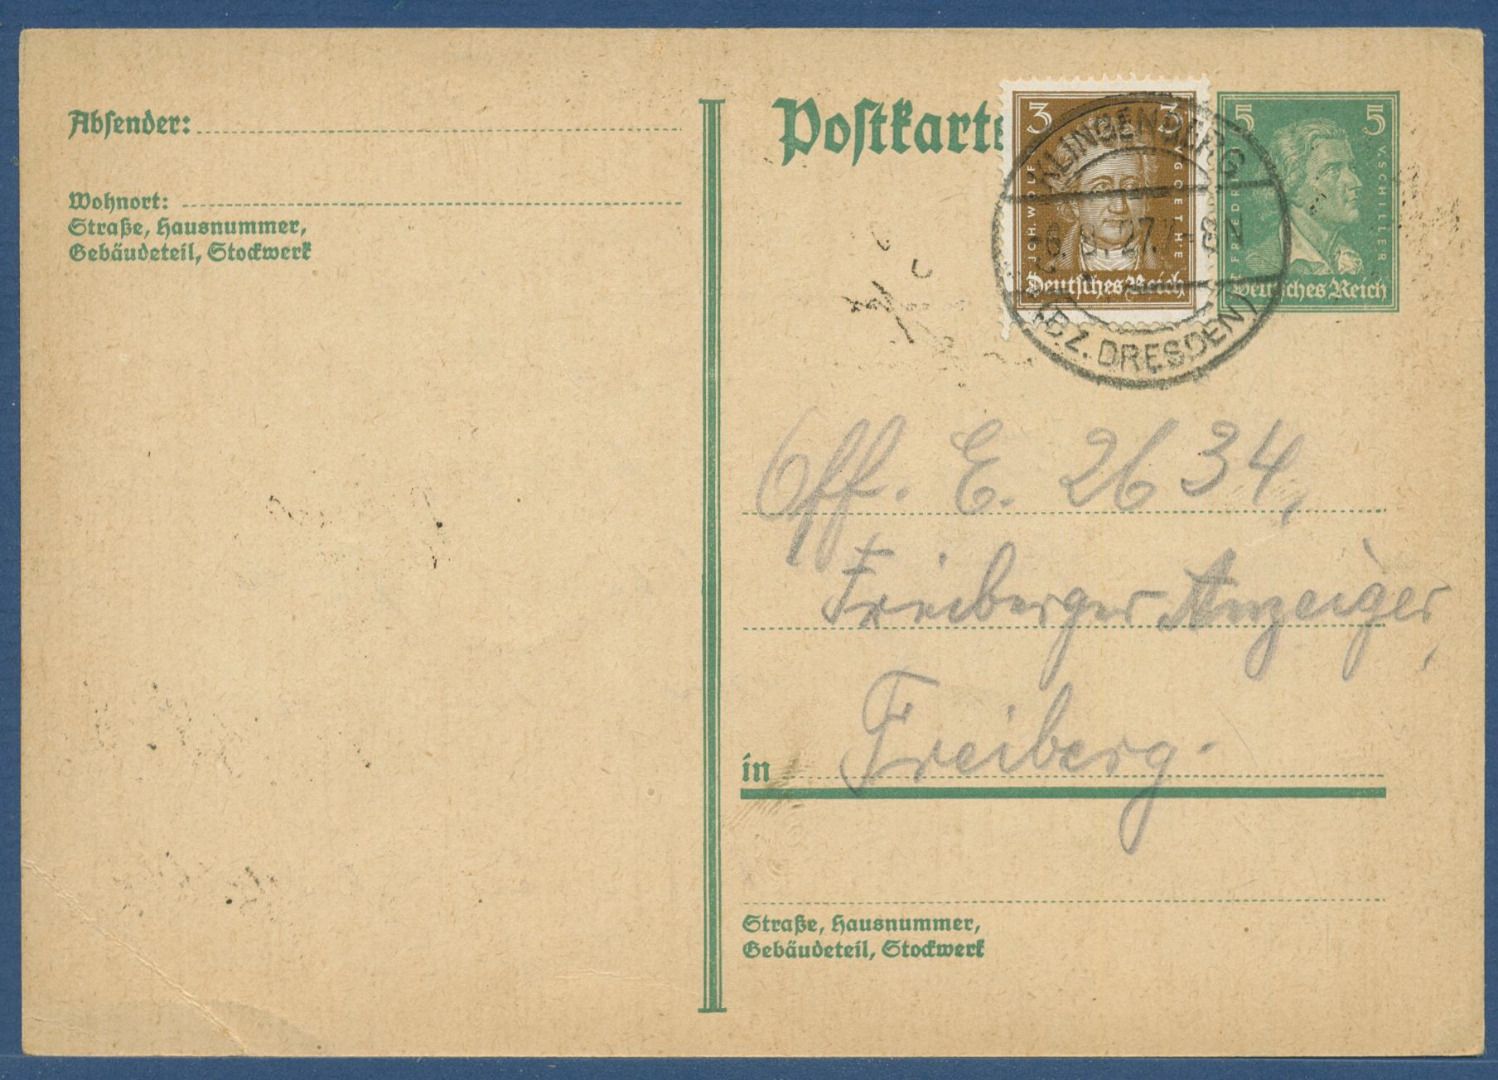 Absender:
Wohnort:
Straße, Hausnummer,
Gebäudeteil, Stockwerk
Postkarte
3 3
JOH. WOLFG. V. GOETHE
Deutsches Reich
5 5
FRIEDR. V. SCHILLER
Deutsches Reich
KLINGENBERG
8. 27. 7-8 N
(BZ. DRESDEN)
Off. E. 2634,
Freiberger Anzeiger,
in Freiberg.
Straße, Hausnummer,
Gebäudeteil, Stockwerk